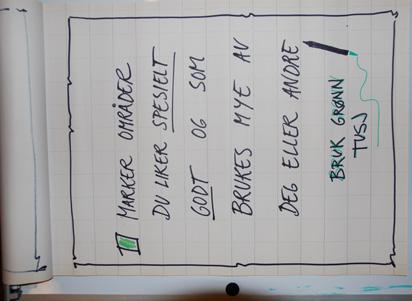 MARKER OMRÅDER
DU LIKER SPESIELT
GODT OG SOM
BRUKES MYE AV
DEG ELLER ANDRE
BRUK GRØNN
TUSJ